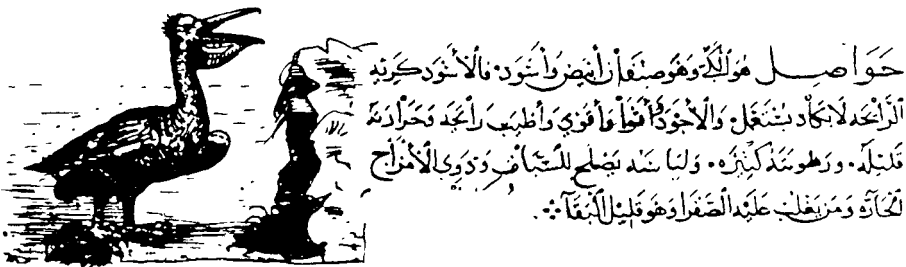 حَوَاصِل هُوَ الكَيّ وَهُوَ صِنفَان أبيَض وَأسْوَد. فَالأَسْوَد كَرِيه
الرَّائِحَه لَا يَكَاد يُسْتَعمَل. وَالأَجْوَد وَأقوَي وَأطيَب رَائِحَه وَحَرَارَته
قَلِيلَه. وَرَهُومَته كَثِيرَه. وَلِبَاسَه يَصلح للشَبَاب وَذَوِي الأَمْزَاج
الحَارَّه وَمَن يَغلب عَلَيه الصَّفرَا وَهُوَ قَلِيل البَقَآ